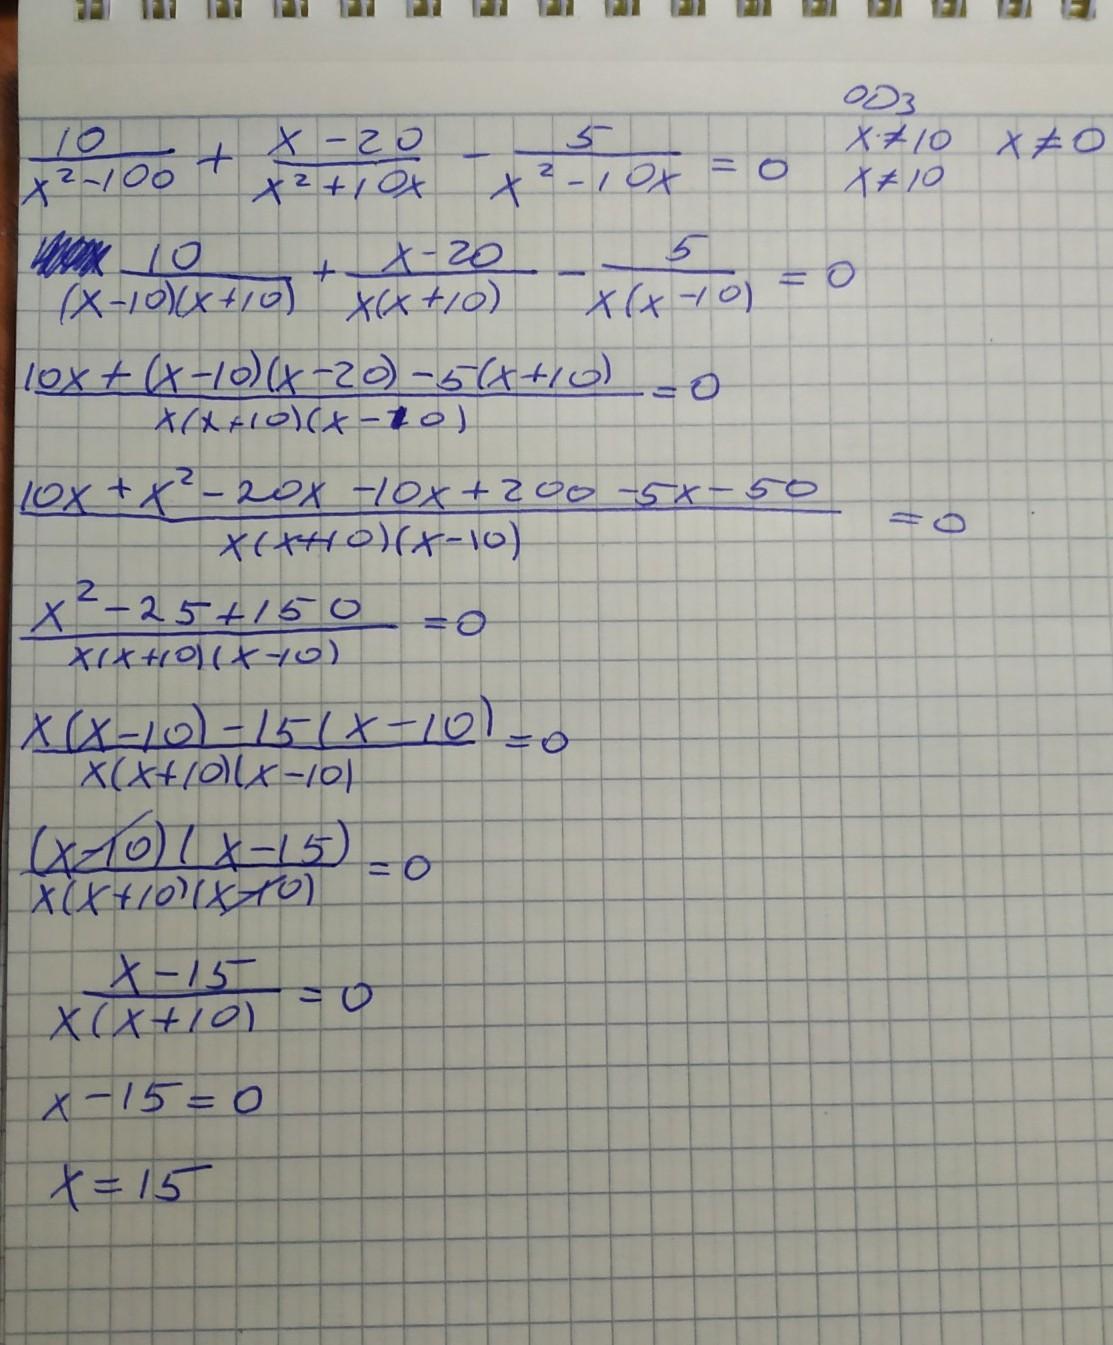 ОДЗ
10/(x²-100) + (x-20)/(x²+10x) - 5/(x²-10x) = 0   x≠10   x≠0
x≠10
10/((x-10)(x+10)) + (x-20)/(x(x+10)) - 5/(x(x-10)) = 0
(10x+(x-10)(x-20)-5(x+10))/(x(x+10)(x-10)) = 0
(10x+x²-20x-10x+200-5x-50)/(x(x+10)(x-10)) = 0
(x²-25+150)/(x(x+10)(x-10)) = 0
(x(x-10)-15(x-10))/(x(x+10)(x-10)) = 0
((x-10)(x-15))/(x(x+10)(x-10)) = 0
(x-15)/(x(x+10)) = 0
x-15=0
x=15